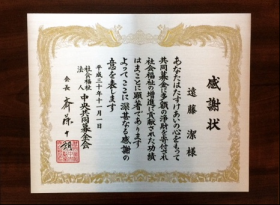 感謝状
遠藤 潔 様
あなたはたすけあいの心をもって
共同募金に多額の浄財を寄付され
社会福祉の増進に貢献された功績
はまことに顕著であります
よってここに深甚なる感謝の
意を表します
平成三十年十一月一日
社会福祉法人 中央共同募金会
会長